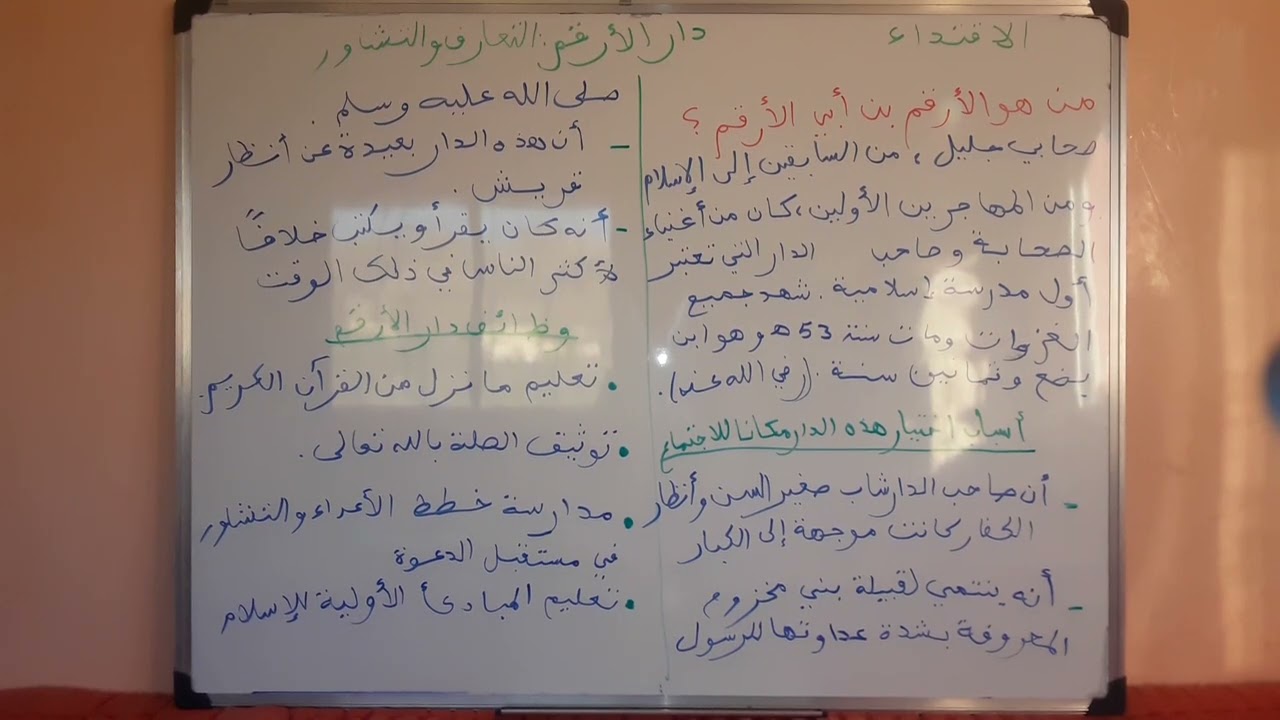 الاقتداء
دار الأرقم: التعارف والتشاور
من هو الأرقم بن أبي الأرقم ؟
صحابي جليل ، من السابقين إلى الإسلام
ومن المهاجرين الأولين، كان من أغنياء
الصحابة وصاحب الدار التي تعتبر
أول مدرسة إسلامية . شهد جميع
الغزوات ومات سنة 53 هـ وهو ابن
بضع وثمانين سنة . (رضي الله عنه).
أسباب اختيار هذه الدار مكانا للاجتماع
- أن صاحب الدار شاب صغير السن وأنظار
الكفار كانت موجهة إلى الكبار
- أنه ينتمي لقبيلة بني مخزوم
المعروفة بشدة عداوتها للرسول
صلى الله عليه وسلم .
- أن هذه الدار بعيدة عن أنظار
قريش .
- أنه كان يقرأ ويكتب خلافًا
لأكثر الناس في ذلك الوقت
وظائف دار الأرقم
• تعليم ما نزل من القرآن الكريم.
• توثيق الصلة بالله تعالى .
• مدارسة خطط الأعداء والتشاور
في مستقبل الدعوة
• تعليم المبادئ الأولية للإسلام